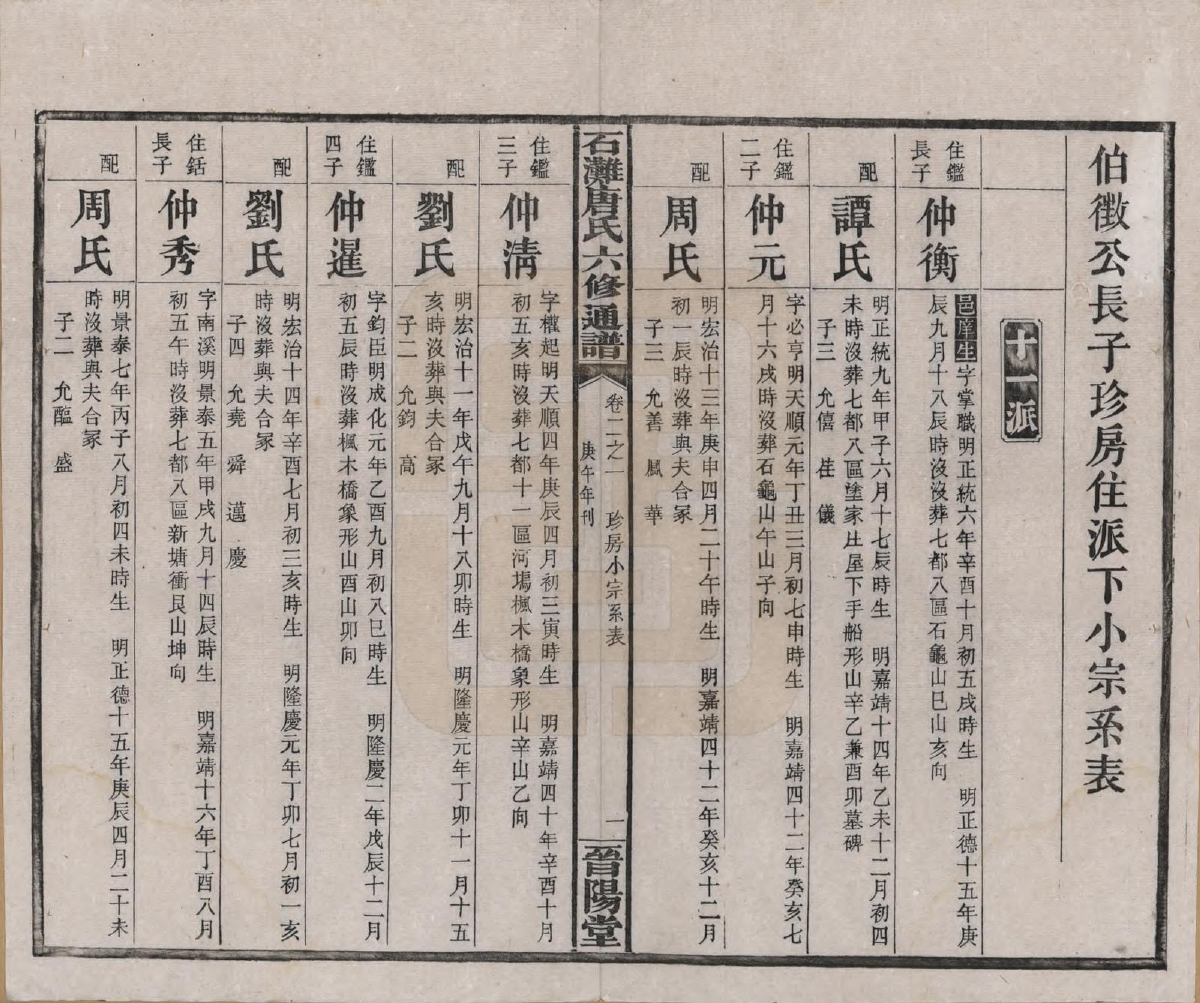 伯徵公長子珍房住派下小宗系表
十一派
住鑑
長子
仲衡
邑庠生字掌職明正統六年辛酉十月初五戌時生　明正德十五年庚
辰九月十八辰時沒沒葬七都八區石龜山巳山亥向
配
譚氏
明正統九年甲子六月十七辰時生　明嘉靖十四年乙未十二月初四
未時沒葬七都八區塗家庄屋下手船形山辛乙兼酉卯墓碑
子三　允僖　隹　儀
住鑑
二子
仲元
字必亨明天順元年丁丑三月初七申時生　明嘉靖四十二年癸亥七
月十六戌時沒葬石龜山午山子向
配
周氏
明宏治十三年庚申四月二十午時生　明嘉靖四十二年癸亥十二月
初一辰時沒葬與夫合冢
子三　允善　風　華
石灘唐氏六修通譜
卷二之一　珍房小宗系表
庚午年刊
一
晉陽堂
住鑑
三子
仲清
字權起明天順四年庚辰四月初三寅時生　明嘉靖四十年辛酉十月
初五亥時沒葬七都十一區河塢楓木橋象形山辛山乙向
配
劉氏
明宏治十一年戊午九月十八卯時生　明隆慶元年丁卯十一月十五
亥時沒葬與夫合冢
子二　允鈞　高
住鑑
四子
仲暹
字鈞臣明成化元年乙酉九月初八巳時生　明隆慶二年戊辰十二月
初五辰時沒葬楓木橋象形山酉山卯向
配
劉氏
明宏治十四年辛酉七月初三亥時生　明隆慶元年丁卯七月初一亥
時沒葬與夫合冢
子四　允堯　舜　邁　慶
住銛
長子
仲秀
字南溪明景泰五年甲戌九月十四辰時生　明嘉靖十六年丁酉八月
初五午時沒葬七都八區新塘衝艮山坤向
配
周氏
明景泰七年丙子八月初四未時生　明正德十五年庚辰四月二十未
時沒葬與夫合冢
子二　允臨　盛